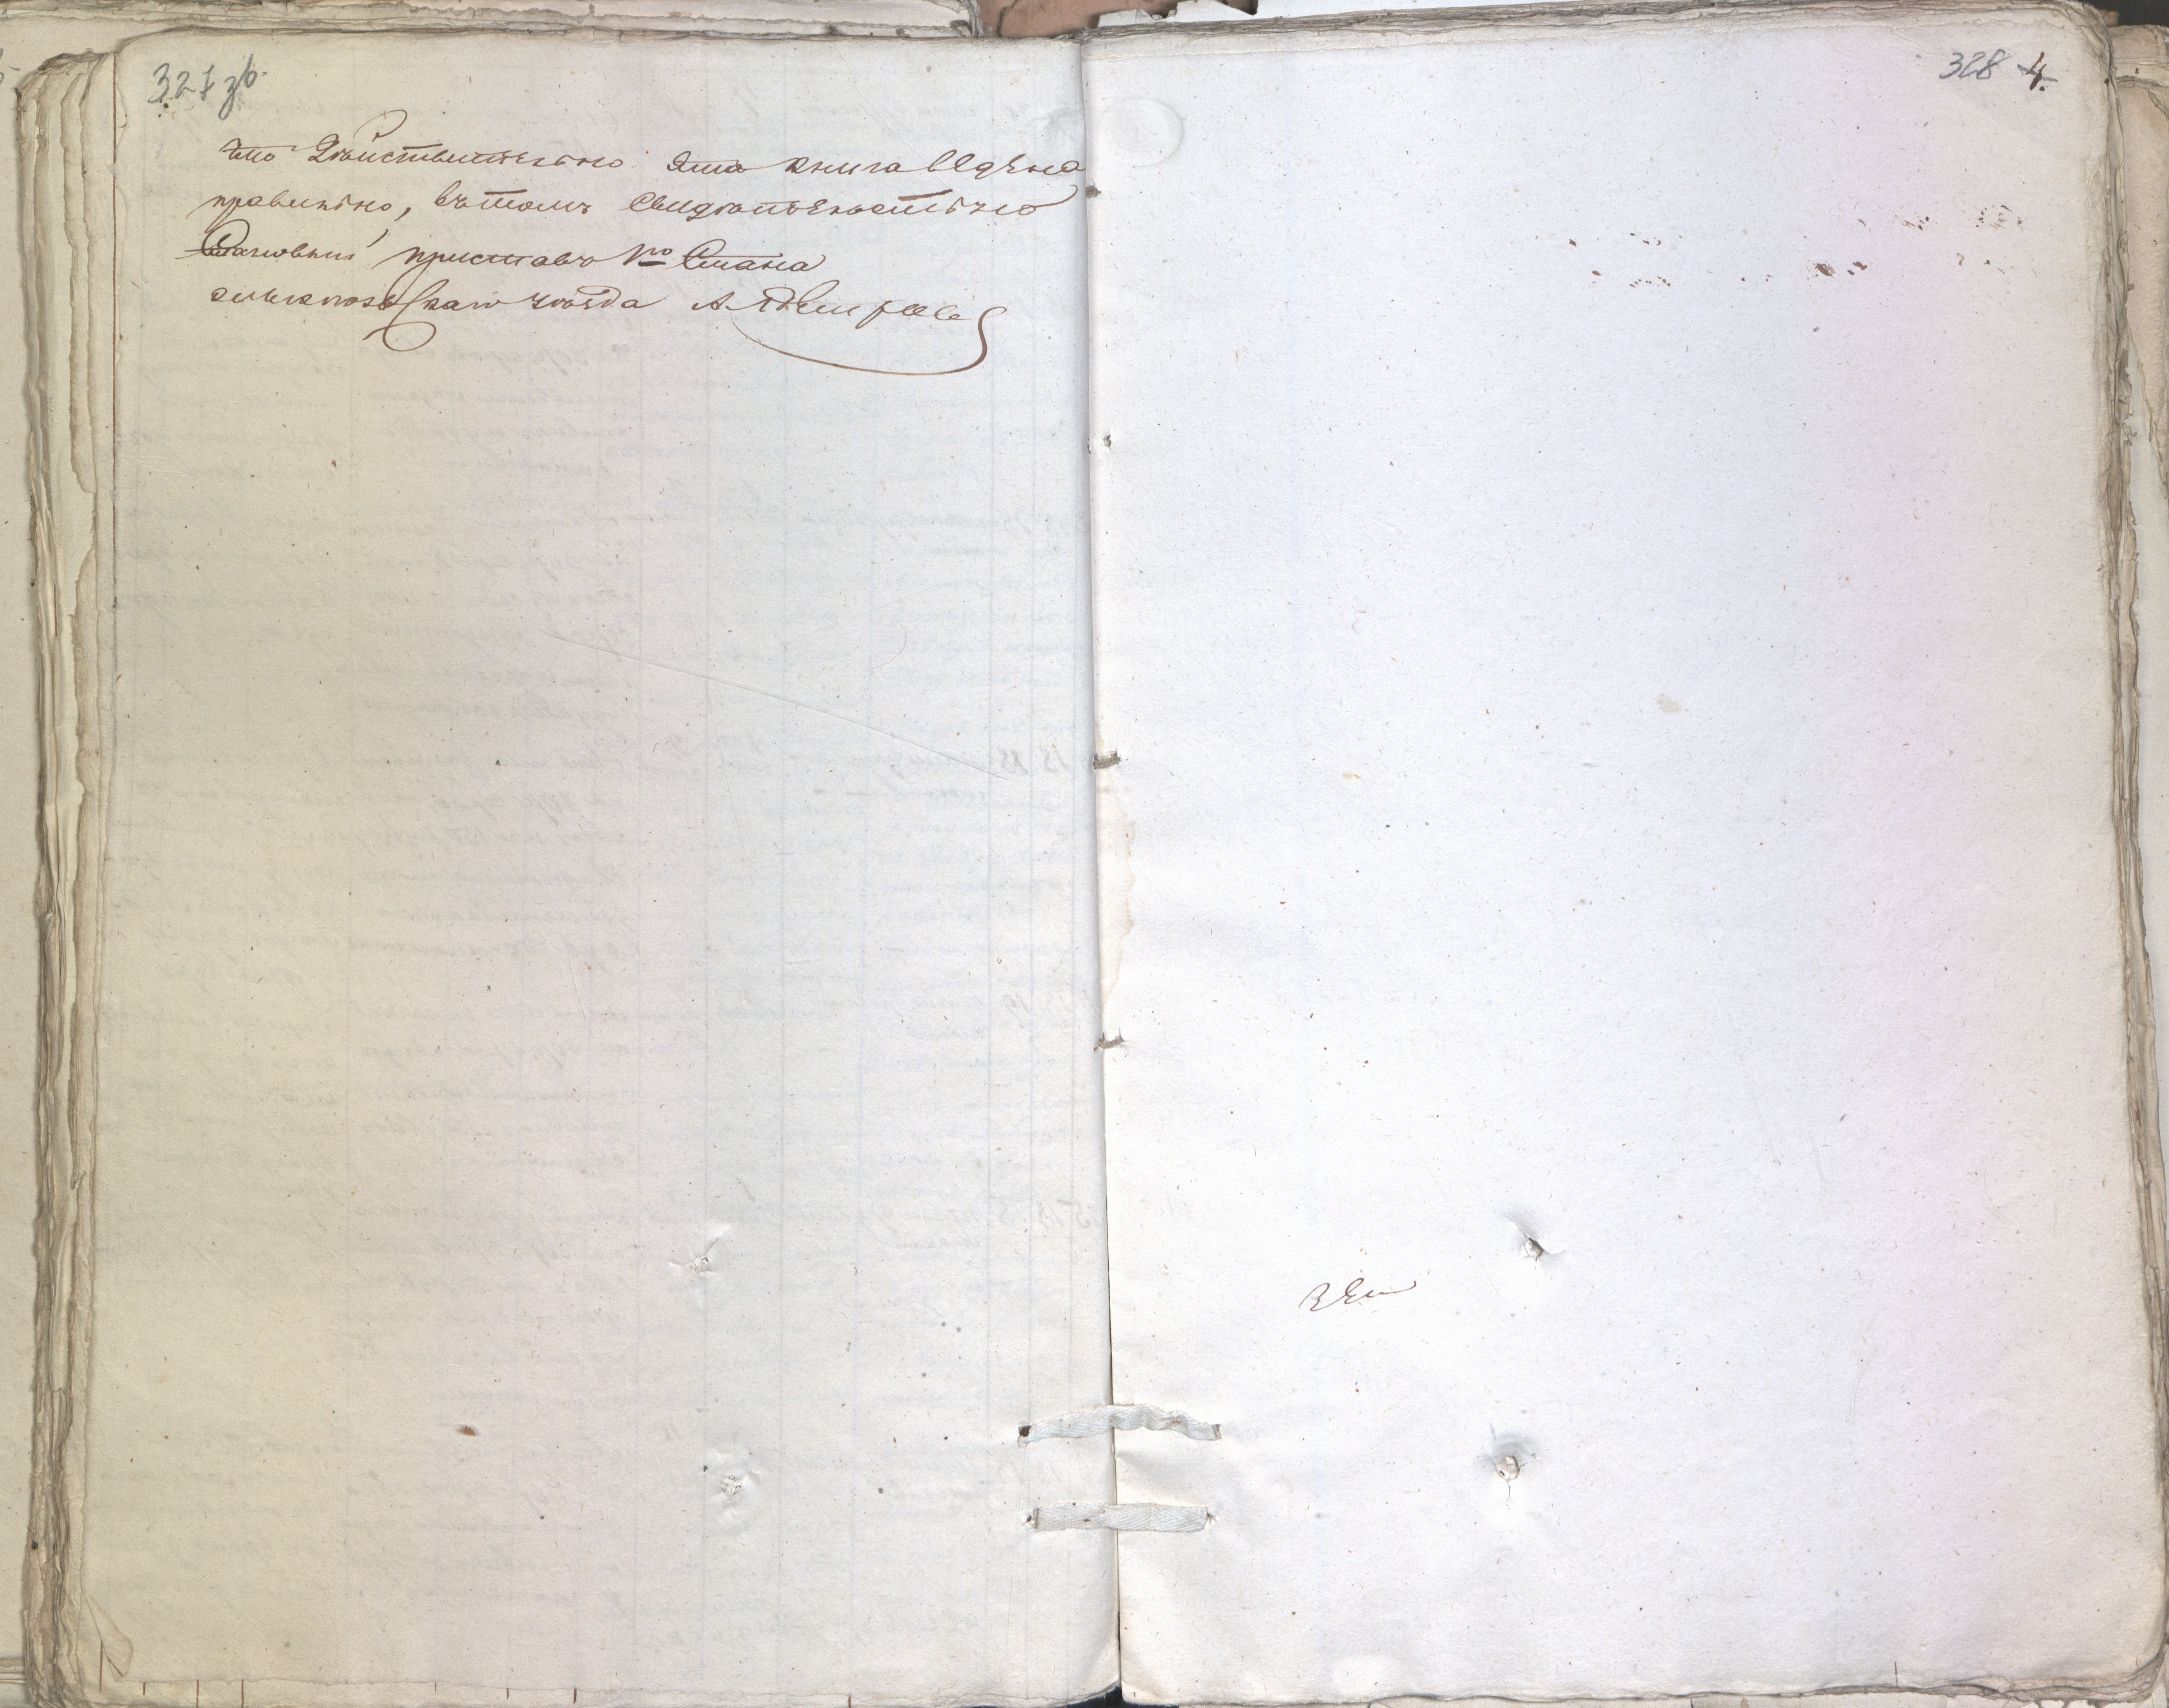 327 зв.
что Действительно эта книга ведена
правильно, въ томъ Свидѣтельствую
Становый приставъ 1го Стана
уѣзда А.
328 4.